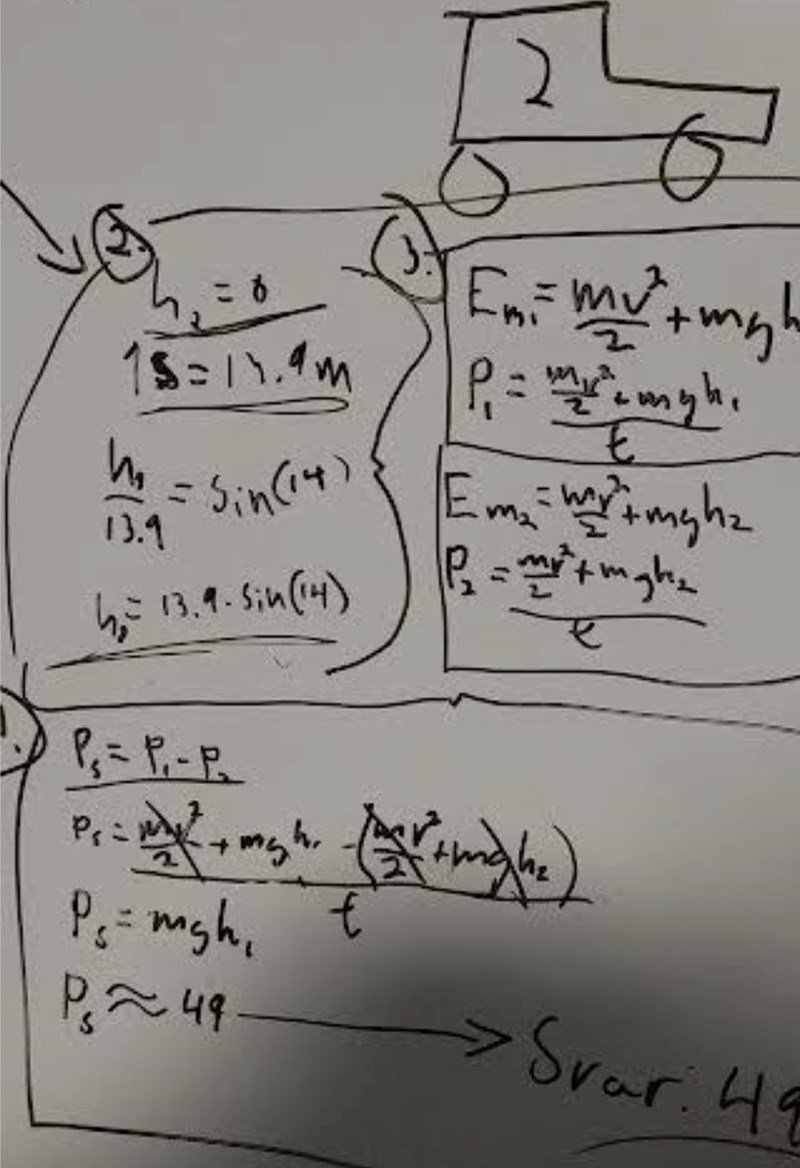 2
2.
h₂ = 0
1s = 13.9m
h₁/13.9 = Sin(14)
h₁ = 13.9 · Sin(14)
3.
Em₁ = mv²/2 + mgh
P₁ = (mv²/2 + mgh₁)/t
Em₂ = mv²/2 + mgh₂
P₂ = (mv²/2 + mgh₂)/t
Ps = P₁ - P₂
Ps = (mv²/2 + mgh₁ - (mv²/2 + mgh₂))/t
Ps = mgh₁
Ps ≈ 49
Svar: 49